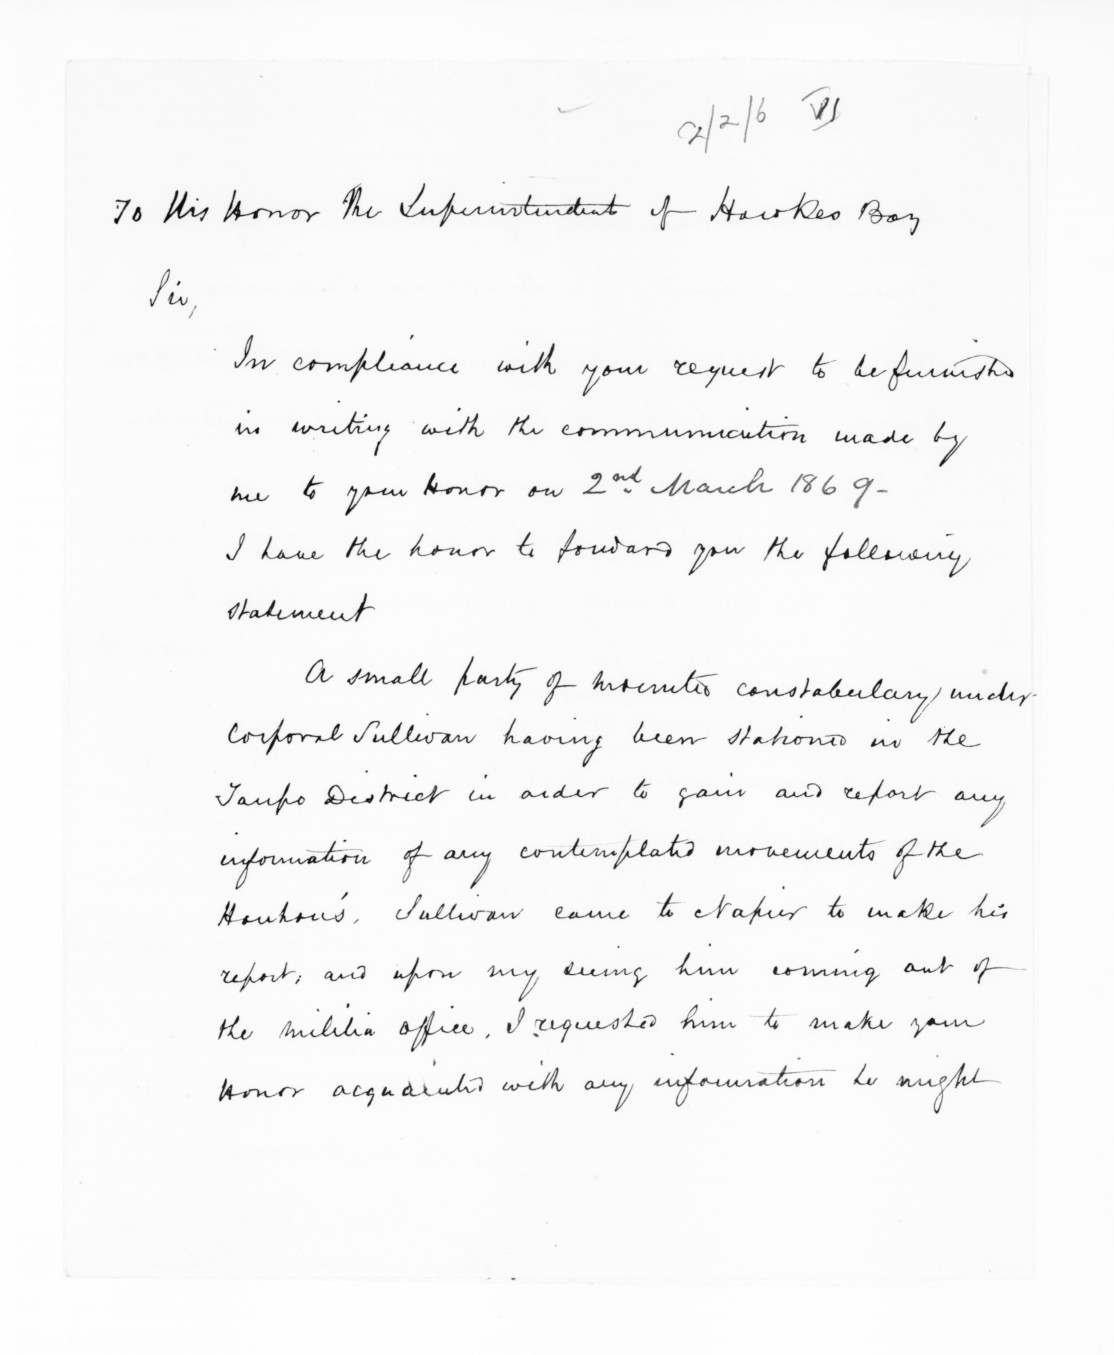 2/2/6 VI
To His Honor The Superintendent of Hawkes Bay
Sir,
In compliance with your request to be furnished
in writing with the communication made by
me to your Honor on 2nd March 1869-
I have the honor to forward you the following
statement
A small party of mounted constabulary under
Corporal Sullivan having been stationed in the
Taupo District in order to gain and report any
information of any contemplated movements of the
Hauhau's. Sullivan came to Napier to make his
report; and upon my seeing him coming out of
the militia office, I requested him to make your
Honor acquainted with any information he might